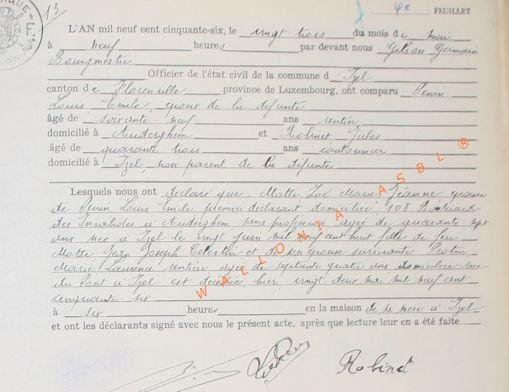 13
4e FEUILLET
L'AN mil neuf cent cinquante-six, le vingt trois du mois de mai
à neuf heures par devant nous Gilson Germain
Bourgmestre
Officier de l'état civil de la commune d' Izel
canton de Florenville province de Luxembourg, ont comparu
Louis Emile, époux de la défunte
âgé de soixante neuf ans rentier
domicilié à Auderghem et Robinet Jules
âgé de quarante trois ans cantonnier
domicilié à Izel, non parent de la défunte
Lesquels nous ont déclaré que Motte Zoé Marie Jeanne épouse
de Louis Emile premier déclarant domiciliée 108 Boulevard
des Invalides à Auderghem sans profession âgée de quarante sept
ans née à Izel le vingt juin mil neuf cent huit fille de feu
Motte Jean Joseph Célestin et de son épouse survivante
Marie Laurence rentière âgée de septante quatre ans domiciliée rue
du Pont à Izel est décédée hier, vingt deux mai mil neuf cent
cinquante six
à six heures en la maison de sa mère à Izel
et ont les déclarants signé avec nous le présent acte, après que lecture leur en a été faite
Robinet
WALLONIA ASBL ®